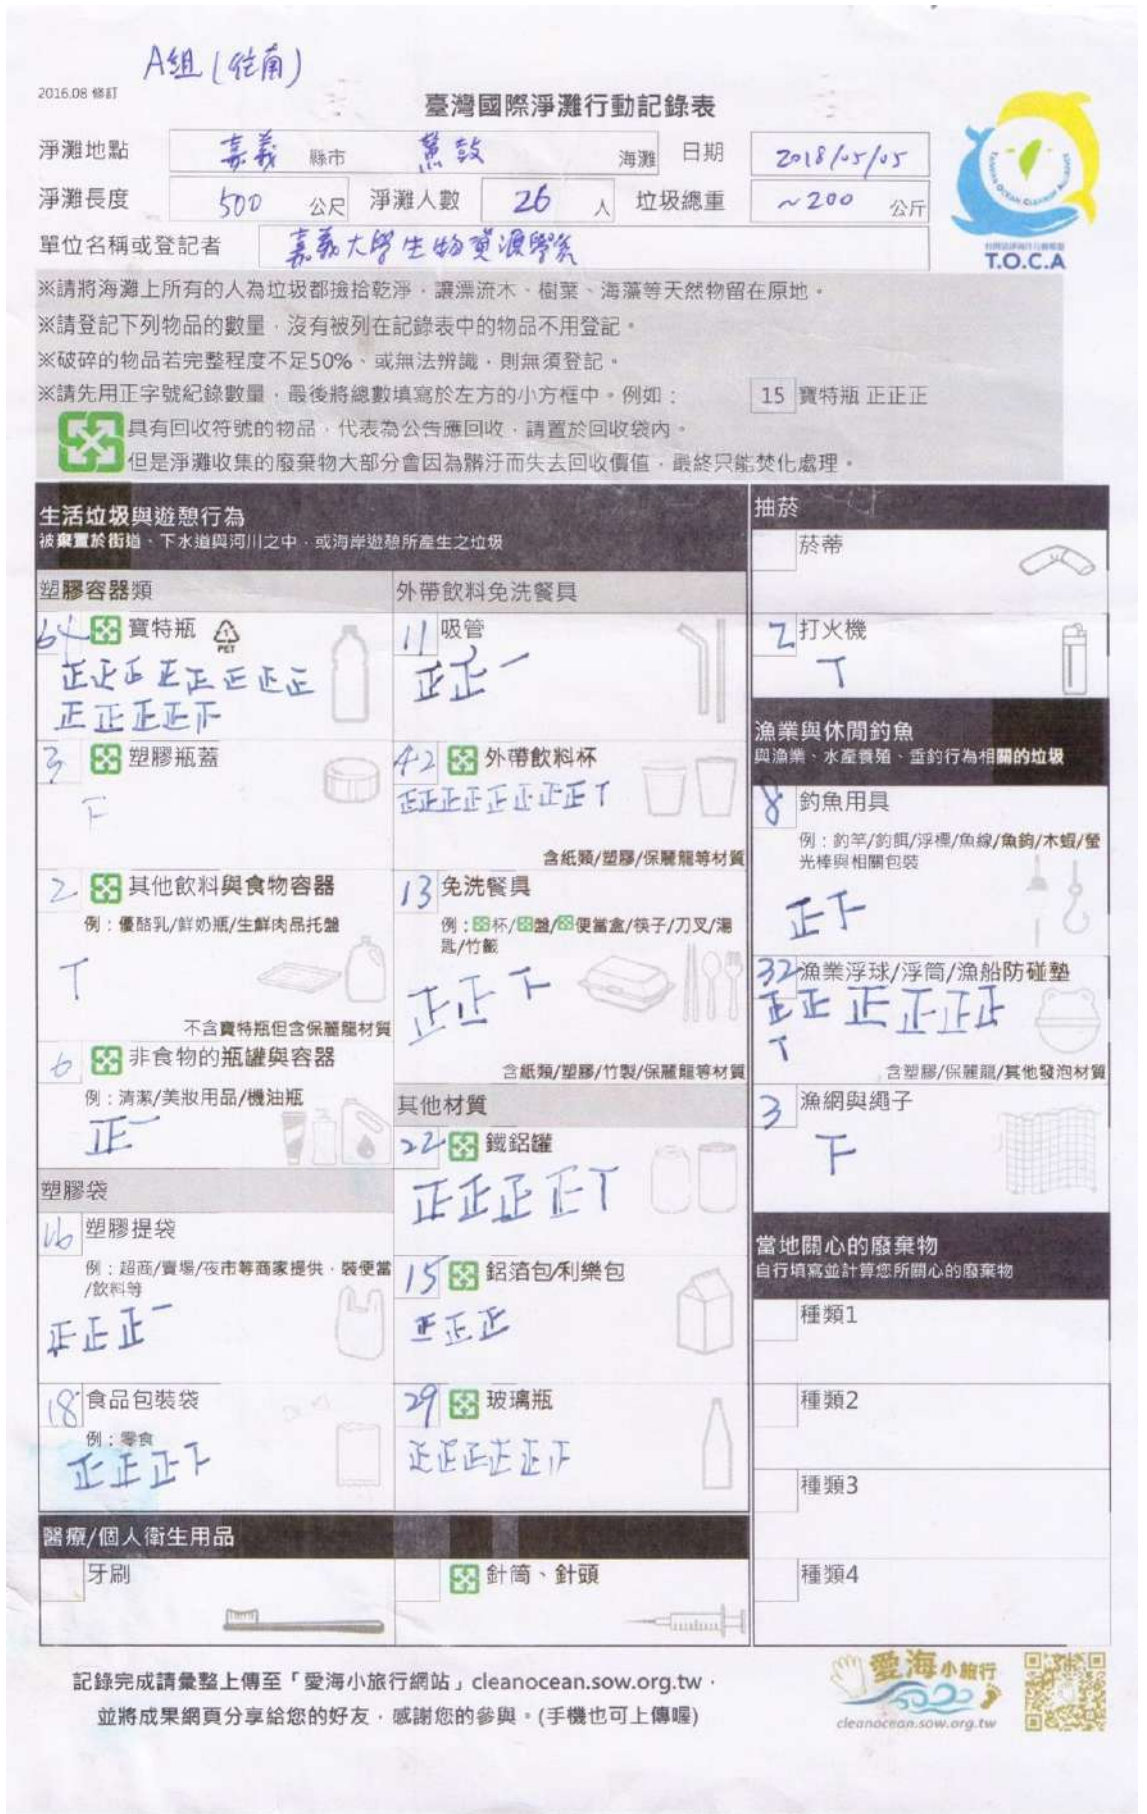 A組(往南)
2016.08 修訂
臺灣國際淨灘行動記錄表
淨灘地點 嘉義 縣市 鰲鼓 海灘 日期 2018/05/05
淨灘長度 500 公尺 淨灘人數 26 人 垃圾總重 ~200 公斤
單位名稱或登記者 嘉義大學生物資源學系
T.O.C.A
※請將海灘上所有的人為垃圾都撿拾乾淨，讓漂流木、樹葉、海藻等天然物留在原地。
※請登記下列物品的數量，沒有被列在記錄表中的物品不用登記。
※破碎的物品若完整程度不足50%、或無法辨識，則無須登記。
※請先用正字號紀錄數量，最後將總數填寫於左方的小方框中。例如： 15 寶特瓶 正正正
具有回收符號的物品，代表為公告應回收，請置於回收袋內。
但是淨灘收集的廢棄物大部分會因為髒汙而失去回收價值，最終只能焚化處理。
生活垃圾與遊憩行為
被棄置於街道、下水道與河川之中，或海岸遊憩所產生之垃圾
塑膠容器類
64 寶特瓶
PET
正正正正正正正正
正正正正下
3 塑膠瓶蓋
下
2 其他飲料與食物容器
例：優酪乳/鮮奶瓶/生鮮肉品托盤
T
不含寶特瓶但含保麗龍材質
6 非食物的瓶罐與容器
例：清潔/美妝用品/機油瓶
正一
塑膠袋
16 塑膠提袋
例：超商/賣場/夜市等商家提供，裝便當
/飲料等
正正正一
18 食品包裝袋
例：零食
正正正下
外帶飲料免洗餐具
11 吸管
正正一
42 外帶飲料杯
正正正正正正正正T
含紙類/塑膠/保麗龍等材質
13 免洗餐具
例：杯/盤/便當盒/筷子/刀叉/湯
匙/竹籤
正正下
含紙類/塑膠/竹製/保麗龍等材質
其他材質
22 鐵鋁罐
正正正正T
15 鋁箔包/利樂包
正正正
29 玻璃瓶
正正正正正正
醫療/個人衛生用品
牙刷
針筒、針頭
抽菸
菸蒂
2 打火機
T
漁業與休閒釣魚
與漁業、水產養殖、垂釣行為相關的垃圾
8 釣魚用具
例：釣竿/釣餌/浮標/魚線/魚鉤/木蝦/螢
光棒與相關包裝
正下
32 漁業浮球/浮筒/漁船防碰墊
正正正正正正
T
含塑膠/保麗龍/其他發泡材質
3 漁網與繩子
下
當地關心的廢棄物
自行填寫並計算您所關心的廢棄物
種類1
種類2
種類3
種類4
記錄完成請彙整上傳至「愛海小旅行網站」cleanocean.sow.org.tw，
並將成果網頁分享給您的好友，感謝您的參與。(手機也可上傳喔)
愛海小旅行
cleanocean.sow.org.tw